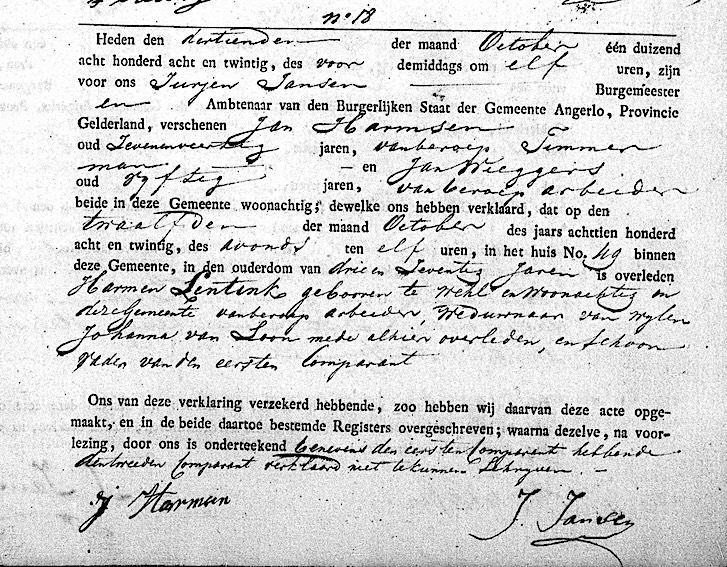 No 18
Heden den dertienden der maand October één duizend
acht honderd acht en twintig, des voor demiddags om elf uren, zijn
voor ons Jurjen Jansen Burgemeester
en Ambtenaar van den Burgerlijken Staat der Gemeente Angerlo, Provincie
Gelderland, verschenen Jan Harmsen
oud Zevenenveertig jaren, van beroep Timmer
man en Jan Wieggers
oud vyftig jaren, van beroep arbeider
beide in deze Gemeente woonachtig; dewelke ons hebben verklaard, dat op den
twaalfden der maand October des jaars achttien honderd
acht en twintig, des avonds ten elf uren, in het huis No. 49 binnen
deze Gemeente, in den ouderdom van drie en Zeventig Jaren is overleden
Harmen Lentink geboren te Wehl en woonachtig in
deze Gemeente van beroep arbeider, Weduwnaar van wylen
Johanna van Loon mede alhier overleden, en schoon
vader van den eersten Comparant
Ons van deze verklaring verzekerd hebbende, zoo hebben wij daarvan deze acte opge-
maakt, en in de beide daartoe bestemde Registers overgeschreven; waarna dezelve, na voor-
lezing, door ons is onderteekend benevens den eersten Comparant hebbende
den tweeden Comparant verklaard niet te kunnen Schryven
J Harman
J. Jansen